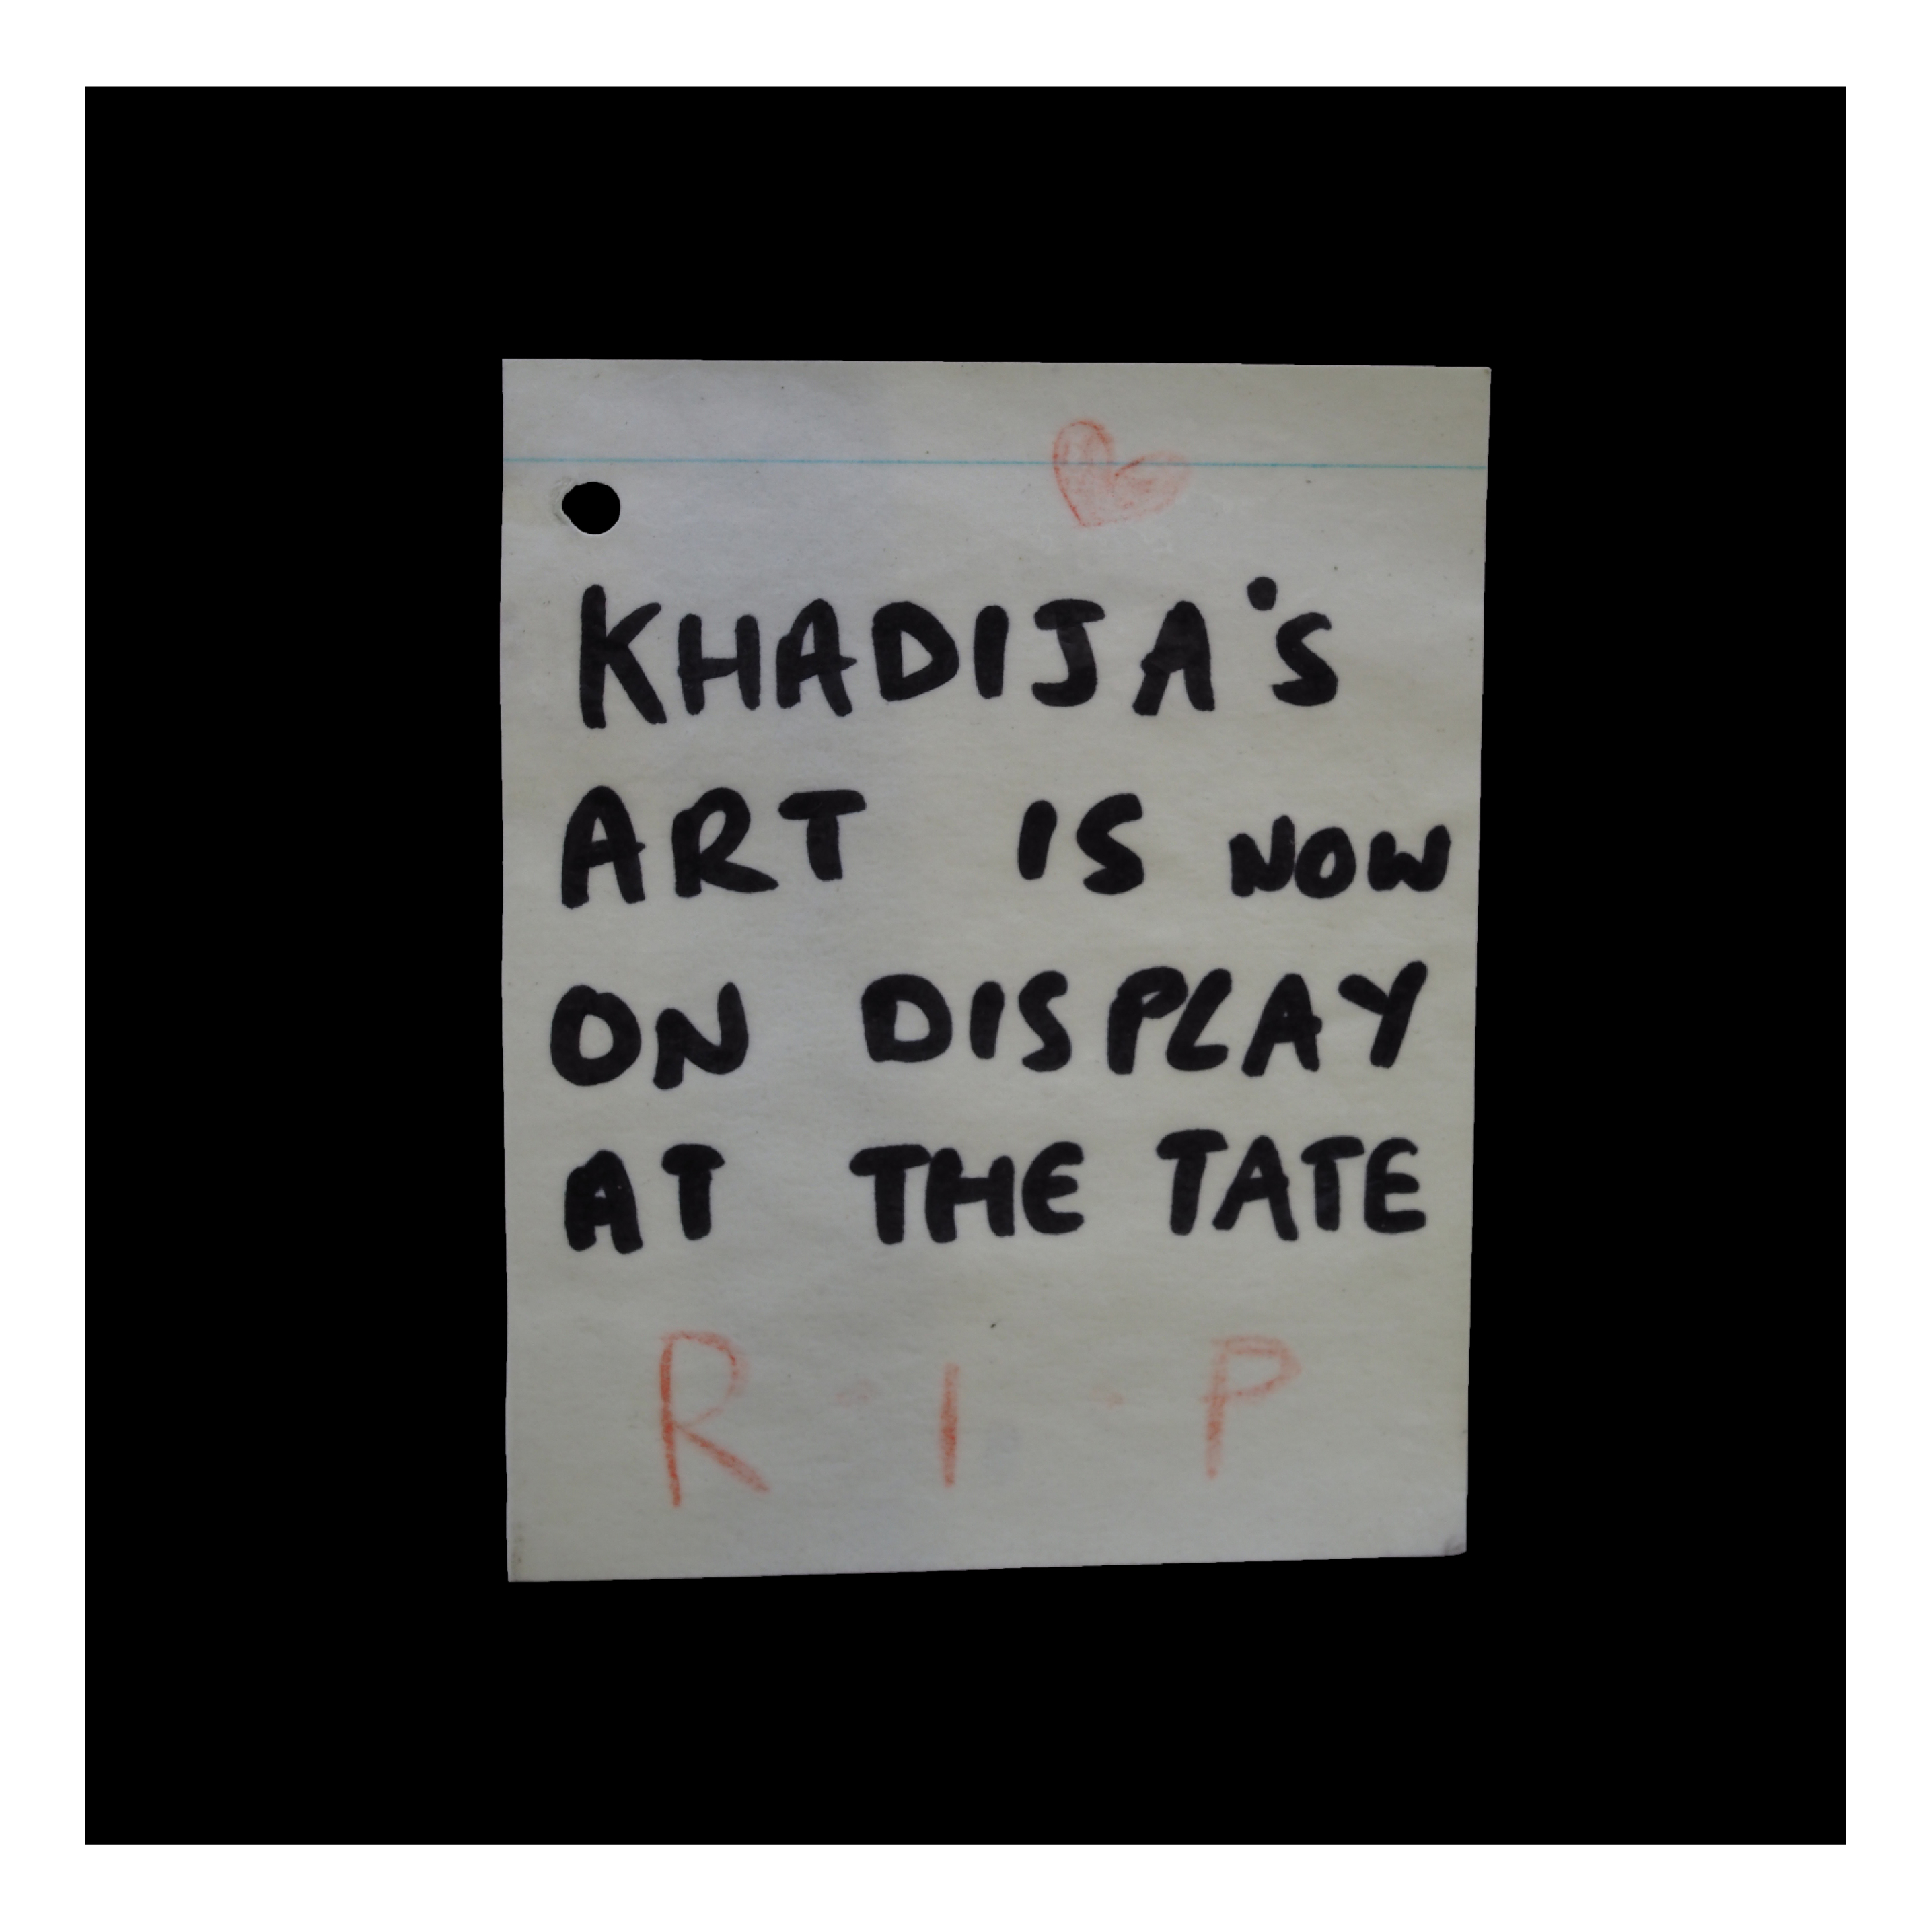 KHADIJA'S
ART IS NOW
ON DISPLAY
AT THE TATE
R.I.P